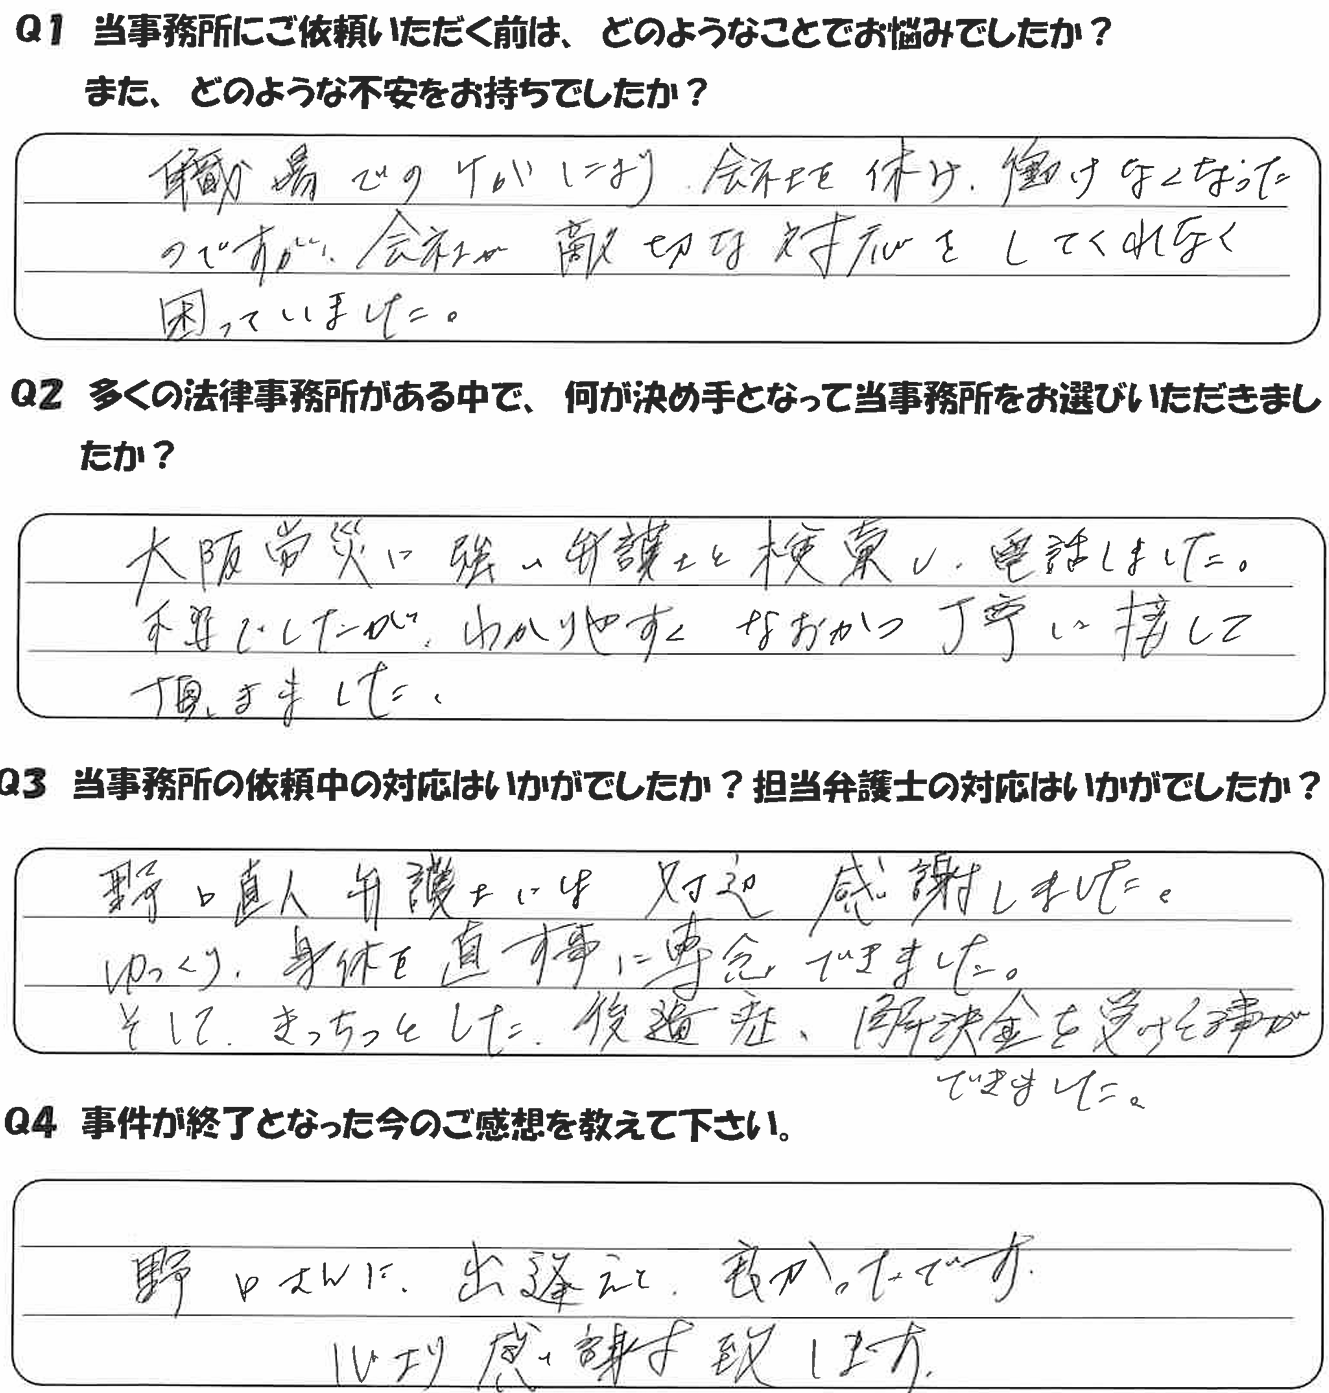 Q1 当事務所にご依頼いただく前は、どのようなことでお悩みでしたか？
また、どのような不安をお持ちでしたか？
職場でのけがにより、会社を休み、働けなくなった
のですが、会社が 切な対応をしてくれなく
困っていました。
Q2 多くの法律事務所がある中で、何が決め手となって当事務所をお選びいただきまし
たか？
大阪労災に強い弁護士と検索し、電話しました。
不安でしたが、わかりやすく なおかつ 丁寧に接して
頂きました。
Q3 当事務所の依頼中の対応はいかがでしたか？担当弁護士の対応はいかがでしたか？
野口直人弁護士には 感謝しました。
ゆっくり、身体を直す事に専念できました。
そして、きっちっとした、後遺症、解決金を受ける事が
できました。
Q4 事件が終了となった今のご感想を教えて下さい。
野口さんに、出逢えて、良かったです。
心より感謝す致します。